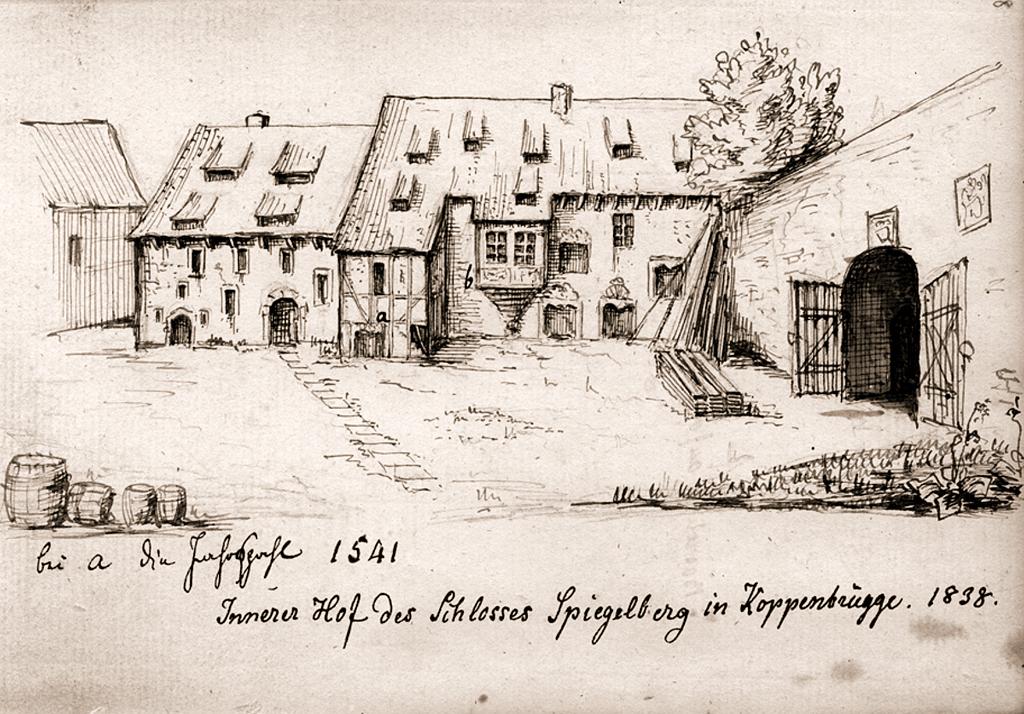 b
a
bei a die Jahrszahl 1541
Innerer Hof des Schlosses Spiegelberg in Koppenbrügge. 1838.